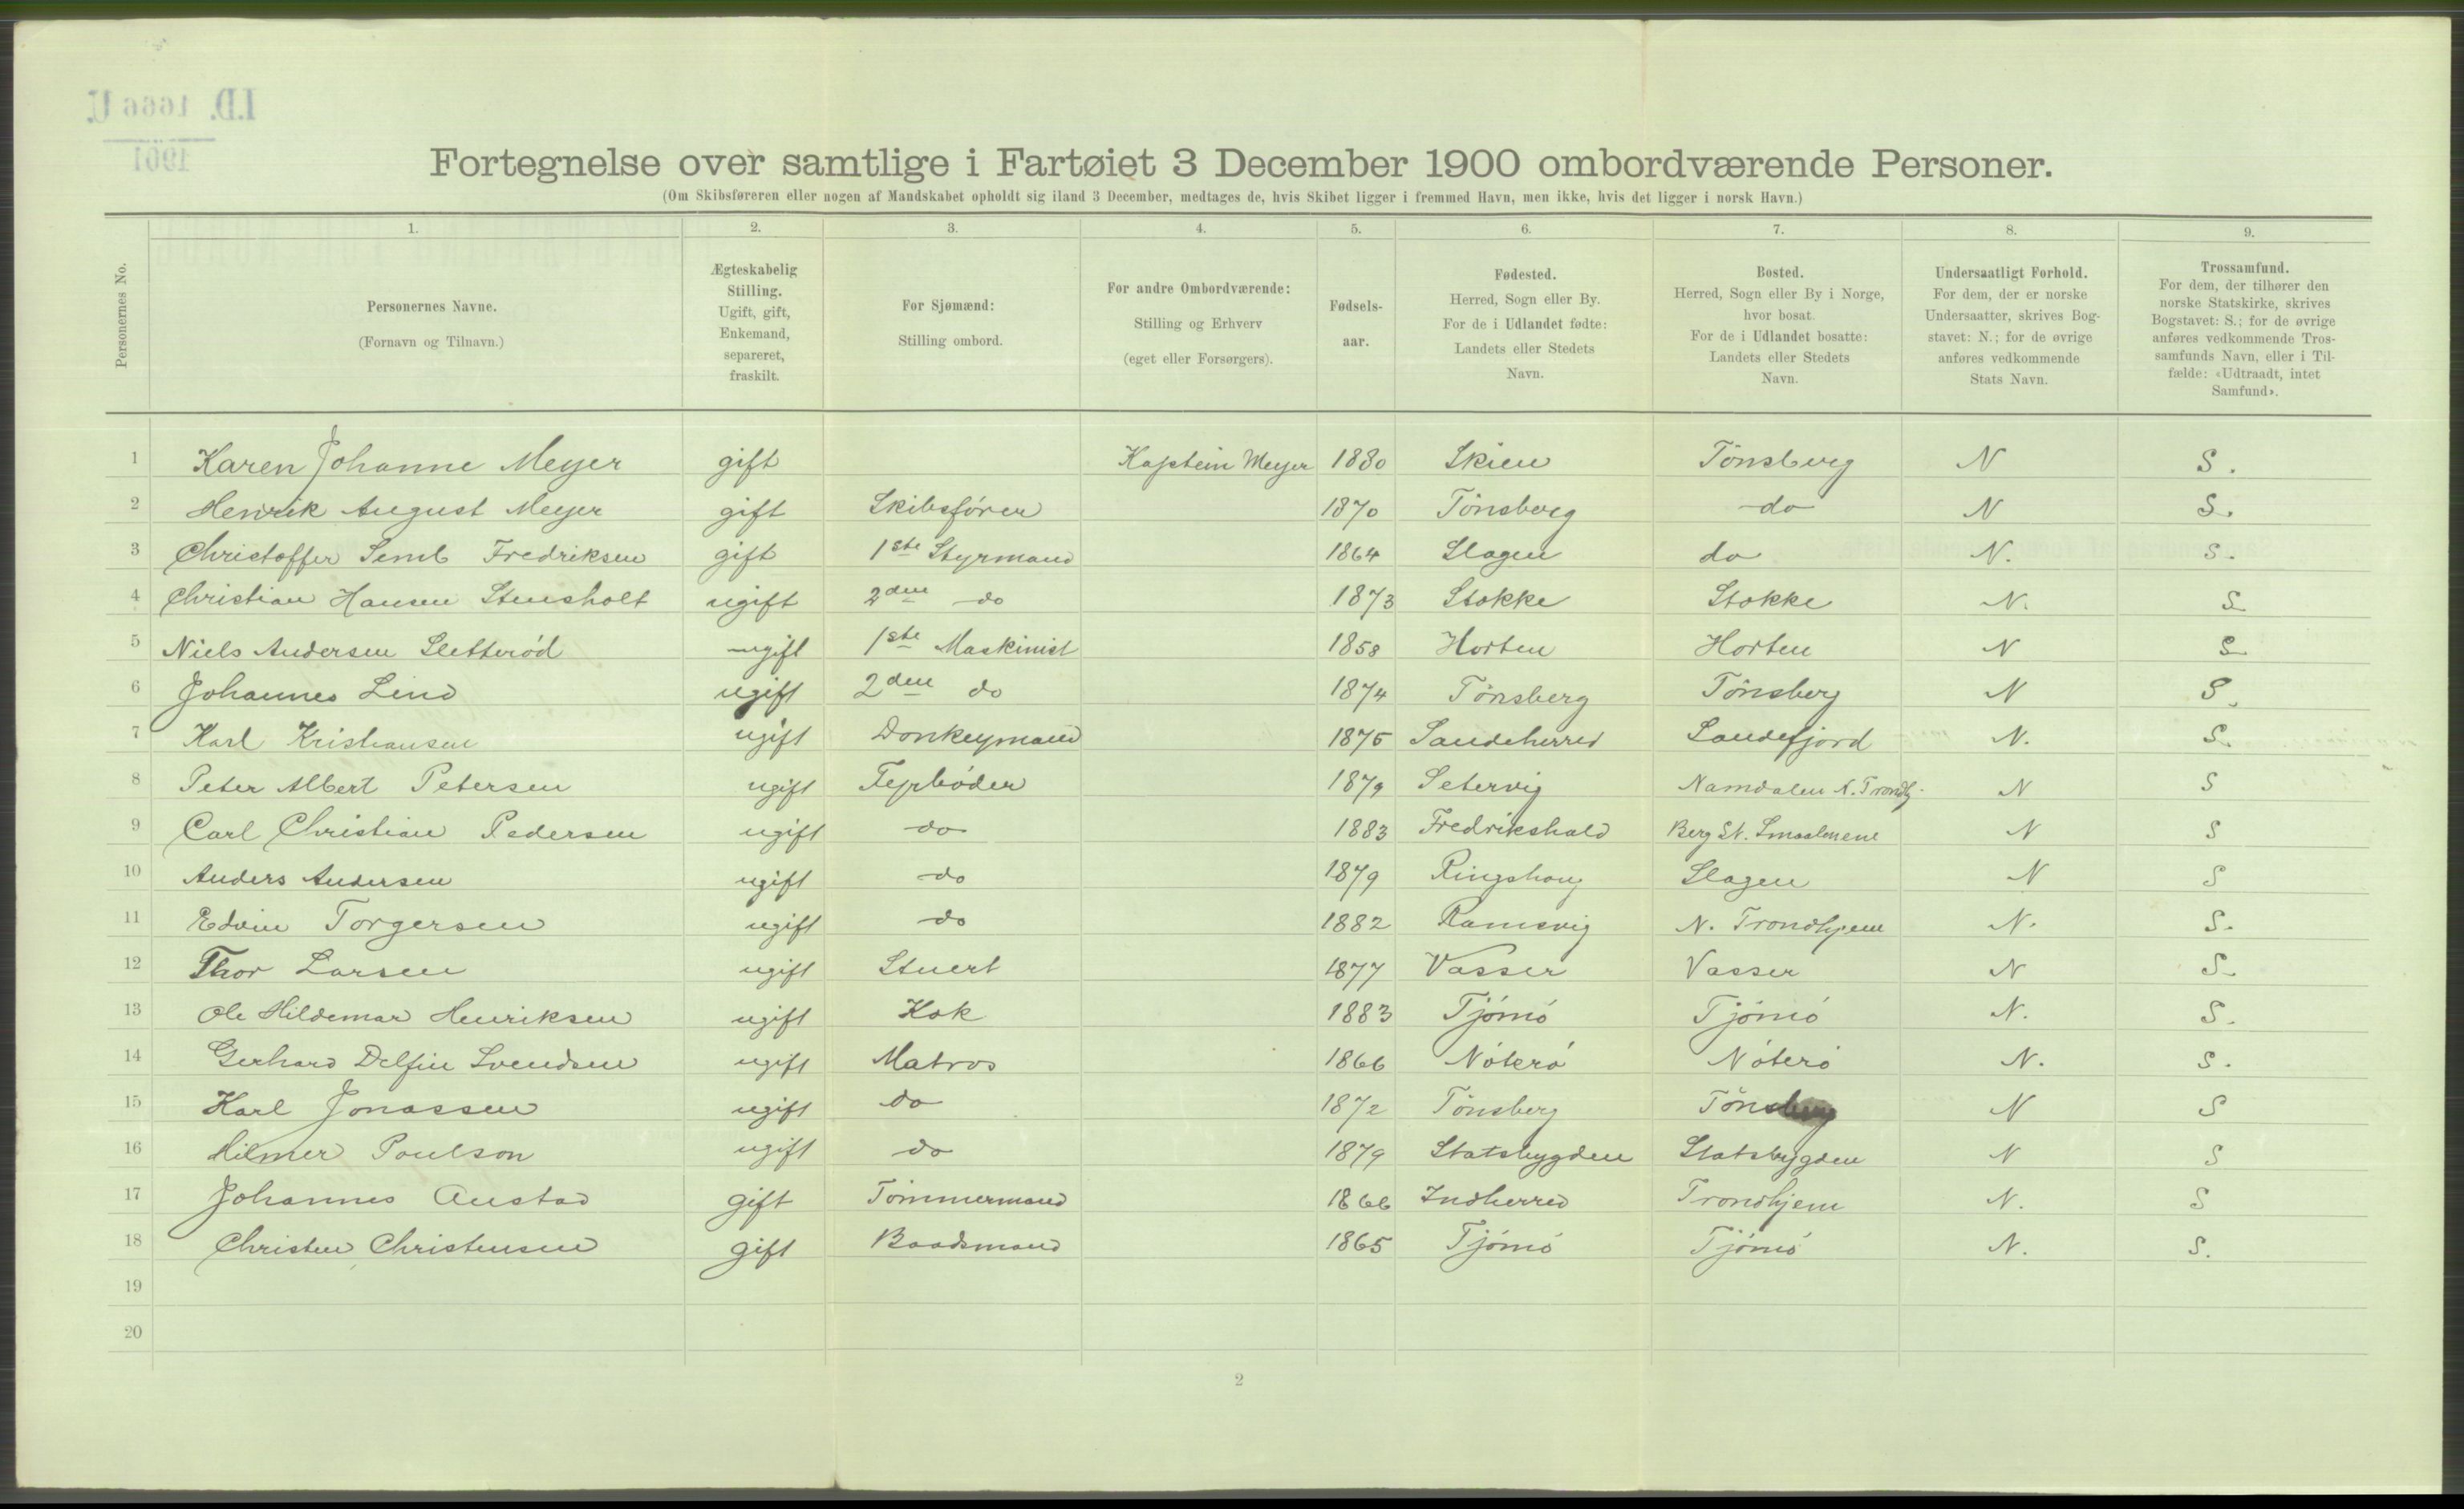 I.D. 1666 U.
1901
Fortegnelse over samtlige i Fartøiet 3 December 1900 ombordværende Personer.
(Om Skibsføreren eller nogen af Mandskabet opholdt sig iland 3 December, medtages de, hvis Skibet ligger i fremmed Havn, men ikke, hvis det ligger i norsk Havn.)
Personernes No.
1. 2. 3. 4. 5. 6. 7. 8. 9.
Personernes Navne.
(Fornavn og Tilnavn.)
Ægteskabelig
Stilling.
Ugift, gift,
Enkemand,
separeret,
fraskilt.
For Sjømænd:
Stilling ombord.
For andre Ombordværende:
Stilling og Erhverv
(eget eller Forsørgers).
Fødsels-
aar.
Fødested.
Herred, Sogn eller By.
For de i Udlandet fødte:
Landets eller Stedets
Navn.
Bosted.
Herred, Sogn eller By i Norge,
hvor bosat.
For de i Udlandet bosatte:
Landets eller Stedets
Navn.
Undersaatligt Forhold.
For dem, der er norske
Undersaatter, skrives Bog-
stavet: N.; for de øvrige
anføres vedkommende
Stats Navn.
Trossamfund.
For dem, der tilhører den
norske Statskirke, skrives
Bogstavet: S.; for de øvrige
anføres vedkommende Tros-
samfunds Navn, eller i Til-
fælde: «Udtraadt, intet
Samfund».
1 Karen Johanne Meyer gift Kaptein Meyer 1880 Skien Tönsberg N S.
2 Henrik August Meyer gift Skibsförer 1870 Tönsberg do N S.
3 Christoffer Semb Fredriksen gift 1ste Styrmand 1864 Slagen do N. S.
4 Christian Hansen Stensholt ugift 2den do 1873 Stokke Stokke N. S
5 Niels Andersen Sletteröd ugift 1ste Maskinist 1858 Horten Horten N S
6 Johannes Lind ugift 2den do 1874 Tönsberg Tönsberg N S.
7 Karl Kristiansen ugift Donkeymand 1875 Sandeherred Sandefjord N. S.
8 Peter Albert Petersen ugift Fyrböder 1879 Setervig Namdalen N. Trondhj. N S
9 Carl Christian Pedersen ugift do 1883 Fredrikshald Berg St. Smaalenene N S
10 Anders Andersen ugift do 1879 Ringshoug Slagen N S
11 Edvin Torgersen ugift do 1882 Ramsvig N. Trondhjem N. S.
12 Thor Larsen ugift Stuert 1877 Vasser Vasser N S.
13 Ole Hildemar Henriksen ugift Kok 1883 Tjömö Tjömö N. S.
14 Gerhard Delfin Svendsen ugift Matros 1866 Nöterö Nöterö N. S.
15 Karl Jonassen ugift do 1872 Tönsberg Tönsberg N S
16 Hilmer Poulson ugift do 1879 Statsbygden Statsbygden N S
17 Johannes Austad gift Tömmermand 1866 Indherred Trondhjem N. S
18 Christen Christensen gift Baadsmand 1865 Tjömö Tjömö N. S.
19
20
2